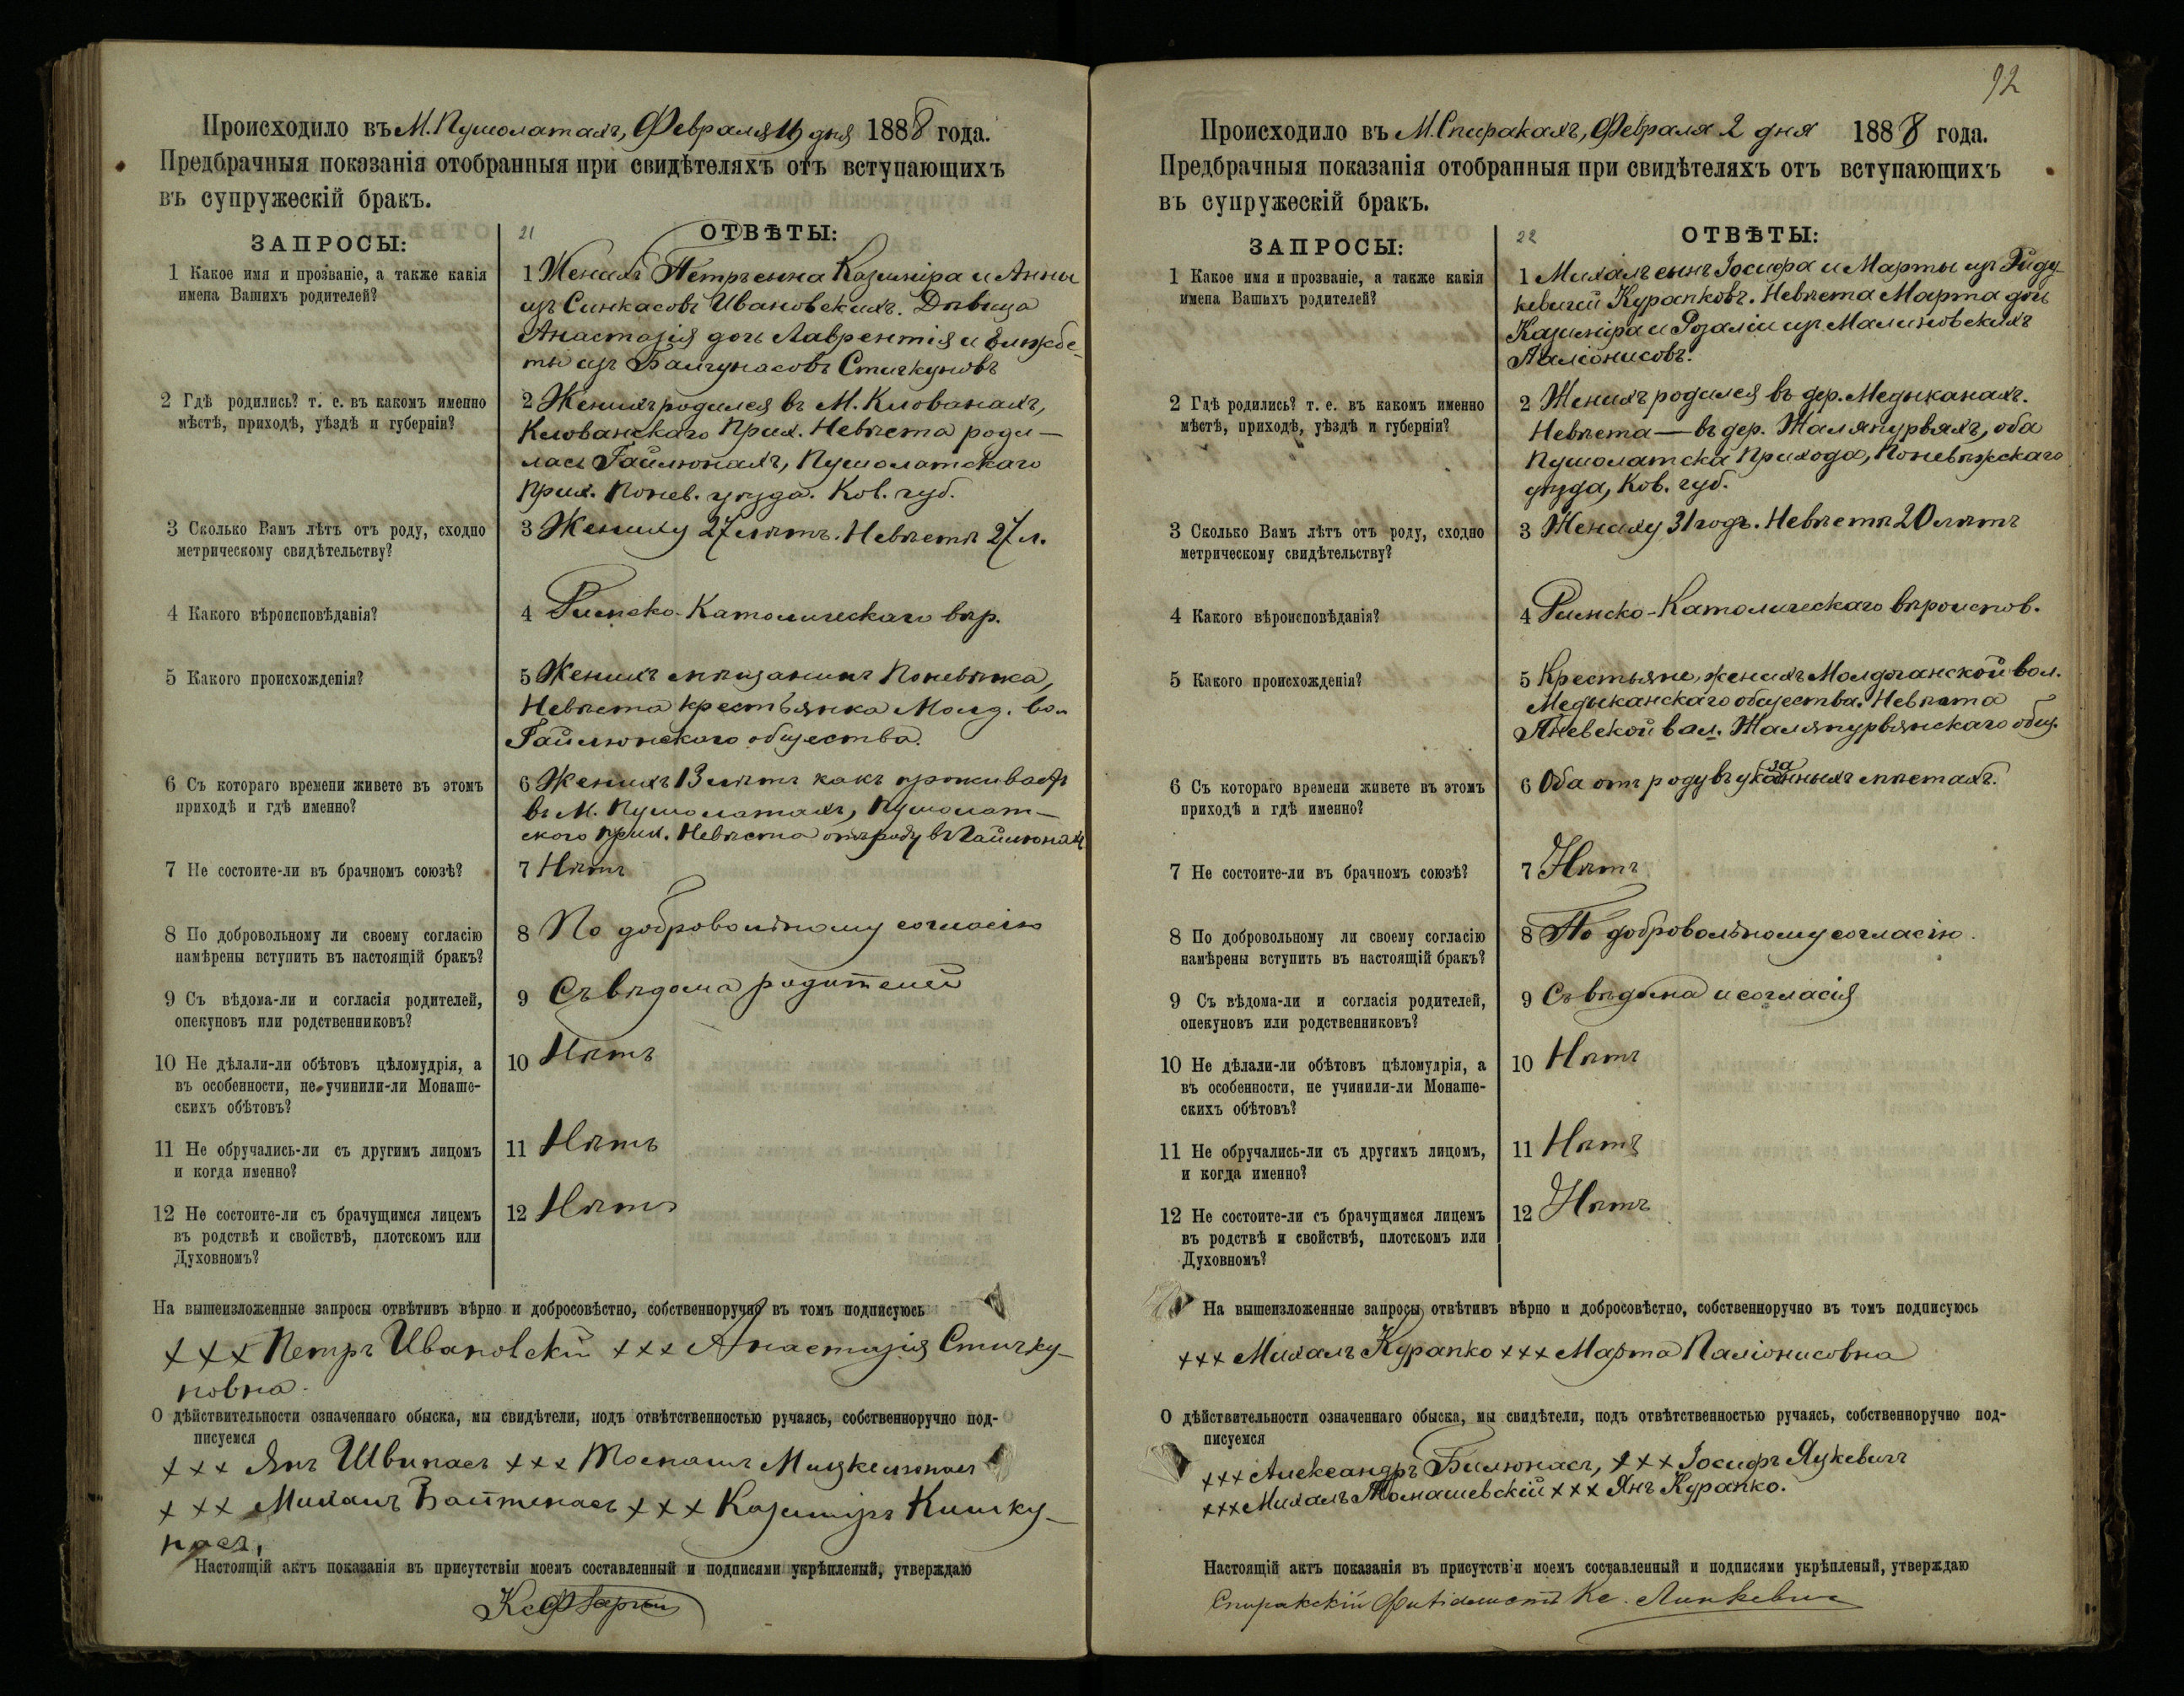 Происходило въ М. Пушолатахъ, Февраля дня 1888 года.
Предбрачныя показанія отобранныя при свидѣтеляхъ отъ вступающихъ
въ супружескій бракъ.
ЗАПРОСЫ:
21
ОТВѢТЫ:
1 Какое имя и прозваніе, а также какія
имена Вашихъ родителей?
1 Женихъ Петръ сына Казиміра и Анны
изъ Синкасовъ Ивановскихъ. Дѣвица
Анастазія дочь Лаврентія и Ельжбе-
ты изъ Балчунасовъ Стичкуновъ
2 Гдѣ родились? т. е. въ какомъ именно
мѣстѣ, приходѣ, уѣздѣ и губерніи?
2 Женихъ родился въ М. Клованахъ,
Клованскаго Прих. Невѣста роди-
лась Гайлюнахъ, Пушолатскаго
Прих. Понев. уѣзда. Ков. губ.
3 Сколько Вамъ лѣтъ отъ роду, сходно
метрическому свидѣтельству?
3 Жениху 27 лѣтъ. Невѣстѣ 27 л.
4 Какого вѣроисповѣданія?
4 Римско-Католическаго вѣр.
5 Какого происхожденія?
5 Женихъ мѣщанинъ Поневѣжа,
Невѣста крестьянка Молд. вол.
Гайлюнского общества.
6 Съ котораго времени живете въ этомъ
приходѣ и гдѣ именно?
6 Женихъ 13 лѣтъ какъ проживаетъ
въ М. Пушолатахъ, Пушолат-
ского прих. Невѣста отъ роду въ Гайлюнахъ
7 Не состоите-ли въ брачномъ союзѣ?
7 Нѣтъ
8 По добровольному ли своему согласію
намѣрены вступить въ настоящій бракъ?
8 По добровольному согласію
9 Съ вѣдома-ли и согласія родителей,
опекуновъ или родственниковъ?
9 Съ вѣдома родителей
10 Не дѣлали-ли обѣтовъ цѣломудрія, а
въ особенности, не учинили-ли Монаше-
скихъ обѣтовъ?
10 Нѣтъ
11 Не обручались-ли съ другимъ лицомъ
и когда именно?
11 Нѣтъ
12 Не состоите-ли съ брачущимся лицемъ
въ родствѣ и свойствѣ, плотскомъ или
Духовномъ?
12 Нѣтъ
На вышеизложенные запросы отвѣтивъ вѣрно и добросовѣстно, собственноручно въ томъ подписуюсь
+++ Петръ Ивановскій +++ Анастазія Стичку-
новна.
О дѣйствительности означеннаго обыска, мы свидѣтели, подъ отвѣтственностью ручаясь, собственноручно под-
писуемся
+++ Янъ Швипасъ +++ Томашъ Мицкелюнасъ
+++ Михалъ Байтенасъ +++ Казиміръ Кишку-
насъ,
Настоящій актъ показанія въ присутствіи моемъ составленный и подписями укрѣпленый, утверждаю
92
Происходило въ М. Спиракахъ, Февраля 2 дня 1888 года.
Предбрачныя показанія отобранныя при свидѣтеляхъ отъ вступающихъ
въ супружескій бракъ.
ЗАПРОСЫ:
22
ОТВѢТЫ:
1 Какое имя и прозваніе, а также какія
имена Вашихъ родителей?
1 Михалъ сынъ Іосифа и Марты изъ Гиду-
кевичей Курапковъ. Невѣста Марта дочь
Казиміра и Розаліи изъ Малиновскихъ
Паліонисовъ.
2 Гдѣ родились? т. е. въ какомъ именно
мѣстѣ, приходѣ, уѣздѣ и губерніи?
2 Женихъ родился въ дер. Медыканахъ.
Невѣста — въ дер. Жаляпурвяхъ, оба
Пушолатска Прихода, Поневѣжскаго
уѣзда, Ков. губ.
3 Сколько Вамъ лѣтъ отъ роду, сходно
метрическому свидѣтельству?
3 Жениху 31 годъ. Невѣстѣ 20 лѣтъ
4 Какого вѣроисповѣданія?
4 Римско-Католическаго вѣроиспов.
5 Какого происхожденія?
5 Крестьяне, женихъ Молдочанской вол.
Медыканскаго общества. Невѣста
Пневской вол. Жаляпурвянскаго общ.
6 Съ котораго времени живете въ этомъ
приходѣ и гдѣ именно?
6 Оба отъ роду въ указанныхъ мѣстахъ.
7 Не состоите-ли въ брачномъ союзѣ?
7 Нѣтъ
8 По добровольному ли своему согласію
намѣрены вступить въ настоящій бракъ?
8 По добровольному согласію.
9 Съ вѣдома-ли и согласія родителей,
опекуновъ или родственниковъ?
9 Съ вѣдома и согласія
10 Не дѣлали-ли обѣтовъ цѣломудрія, а
въ особенности, не учинили-ли Монаше-
скихъ обѣтовъ?
10 Нѣтъ
11 Не обручались-ли съ другимъ лицомъ,
и когда именно?
11 Нѣтъ
12 Не состоите-ли съ брачущимся лицемъ
въ родствѣ и свойствѣ, плотскомъ или
Духовномъ?
12 Нѣтъ
На вышеизложенные запросы отвѣтивъ вѣрно и добросовѣстно, собственноручно въ томъ подписуюсь
+++ Михалъ Курапко +++ Марта Паліонисовна
О дѣйствительности означеннаго обыска, мы свидѣтели, подъ отвѣтственностью ручаясь, собственноручно под-
писуемся
+++ Александръ Билюнасъ, +++ Іосифъ Яцкевичъ
+++ Михалъ Томашевскій +++ Янъ Курапко.
Настоящій актъ показанія въ присутствіи моемъ составленный и подписями укрѣпленый, утверждаю
Спиракскій Филіалистъ Кс. Линкевичъ